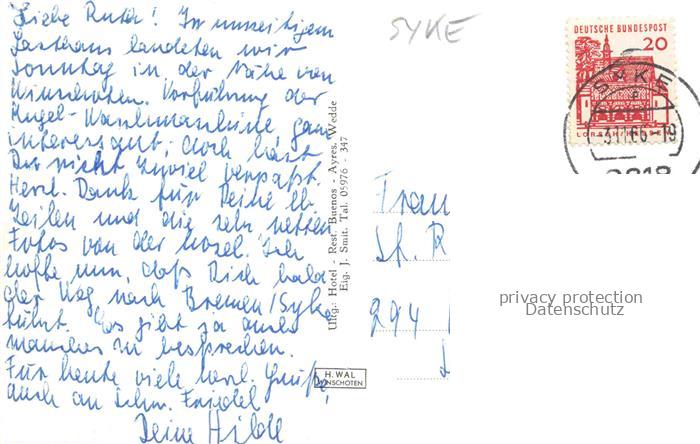 Liebe Ruth! In
Gasthaus landeten wir
Sonntag in der Nähe von
Winschoten. Vorführung der
Kugel-Waschmaschine ganz
interessant, doch hast
Du nicht zuviel verpaßt.
Herzl. Dank für Deine lb.
Zeilen und die sehr netten
Fotos von der Mosel. Ich
hoffe nun, daß Dich bald
der Weg nach Bremen/Syke
führt. Es gibt ja auch
manches zu besprechen.
Für heute viele herzl. Grüße,
auch an Schw. Friedel
Deine Hilde
Uitg.: Hotel - Rest. Buenos - Ayres, Wedde
Eig. J. Smit. Tal. 05976 - 347
H. WAL
WINSCHOTEN
SYKE
DEUTSCHE BUNDESPOST
20
LORSCH/HESSEN
SYKE
2818
Frau
R
294
privacy protection
Datenschutz